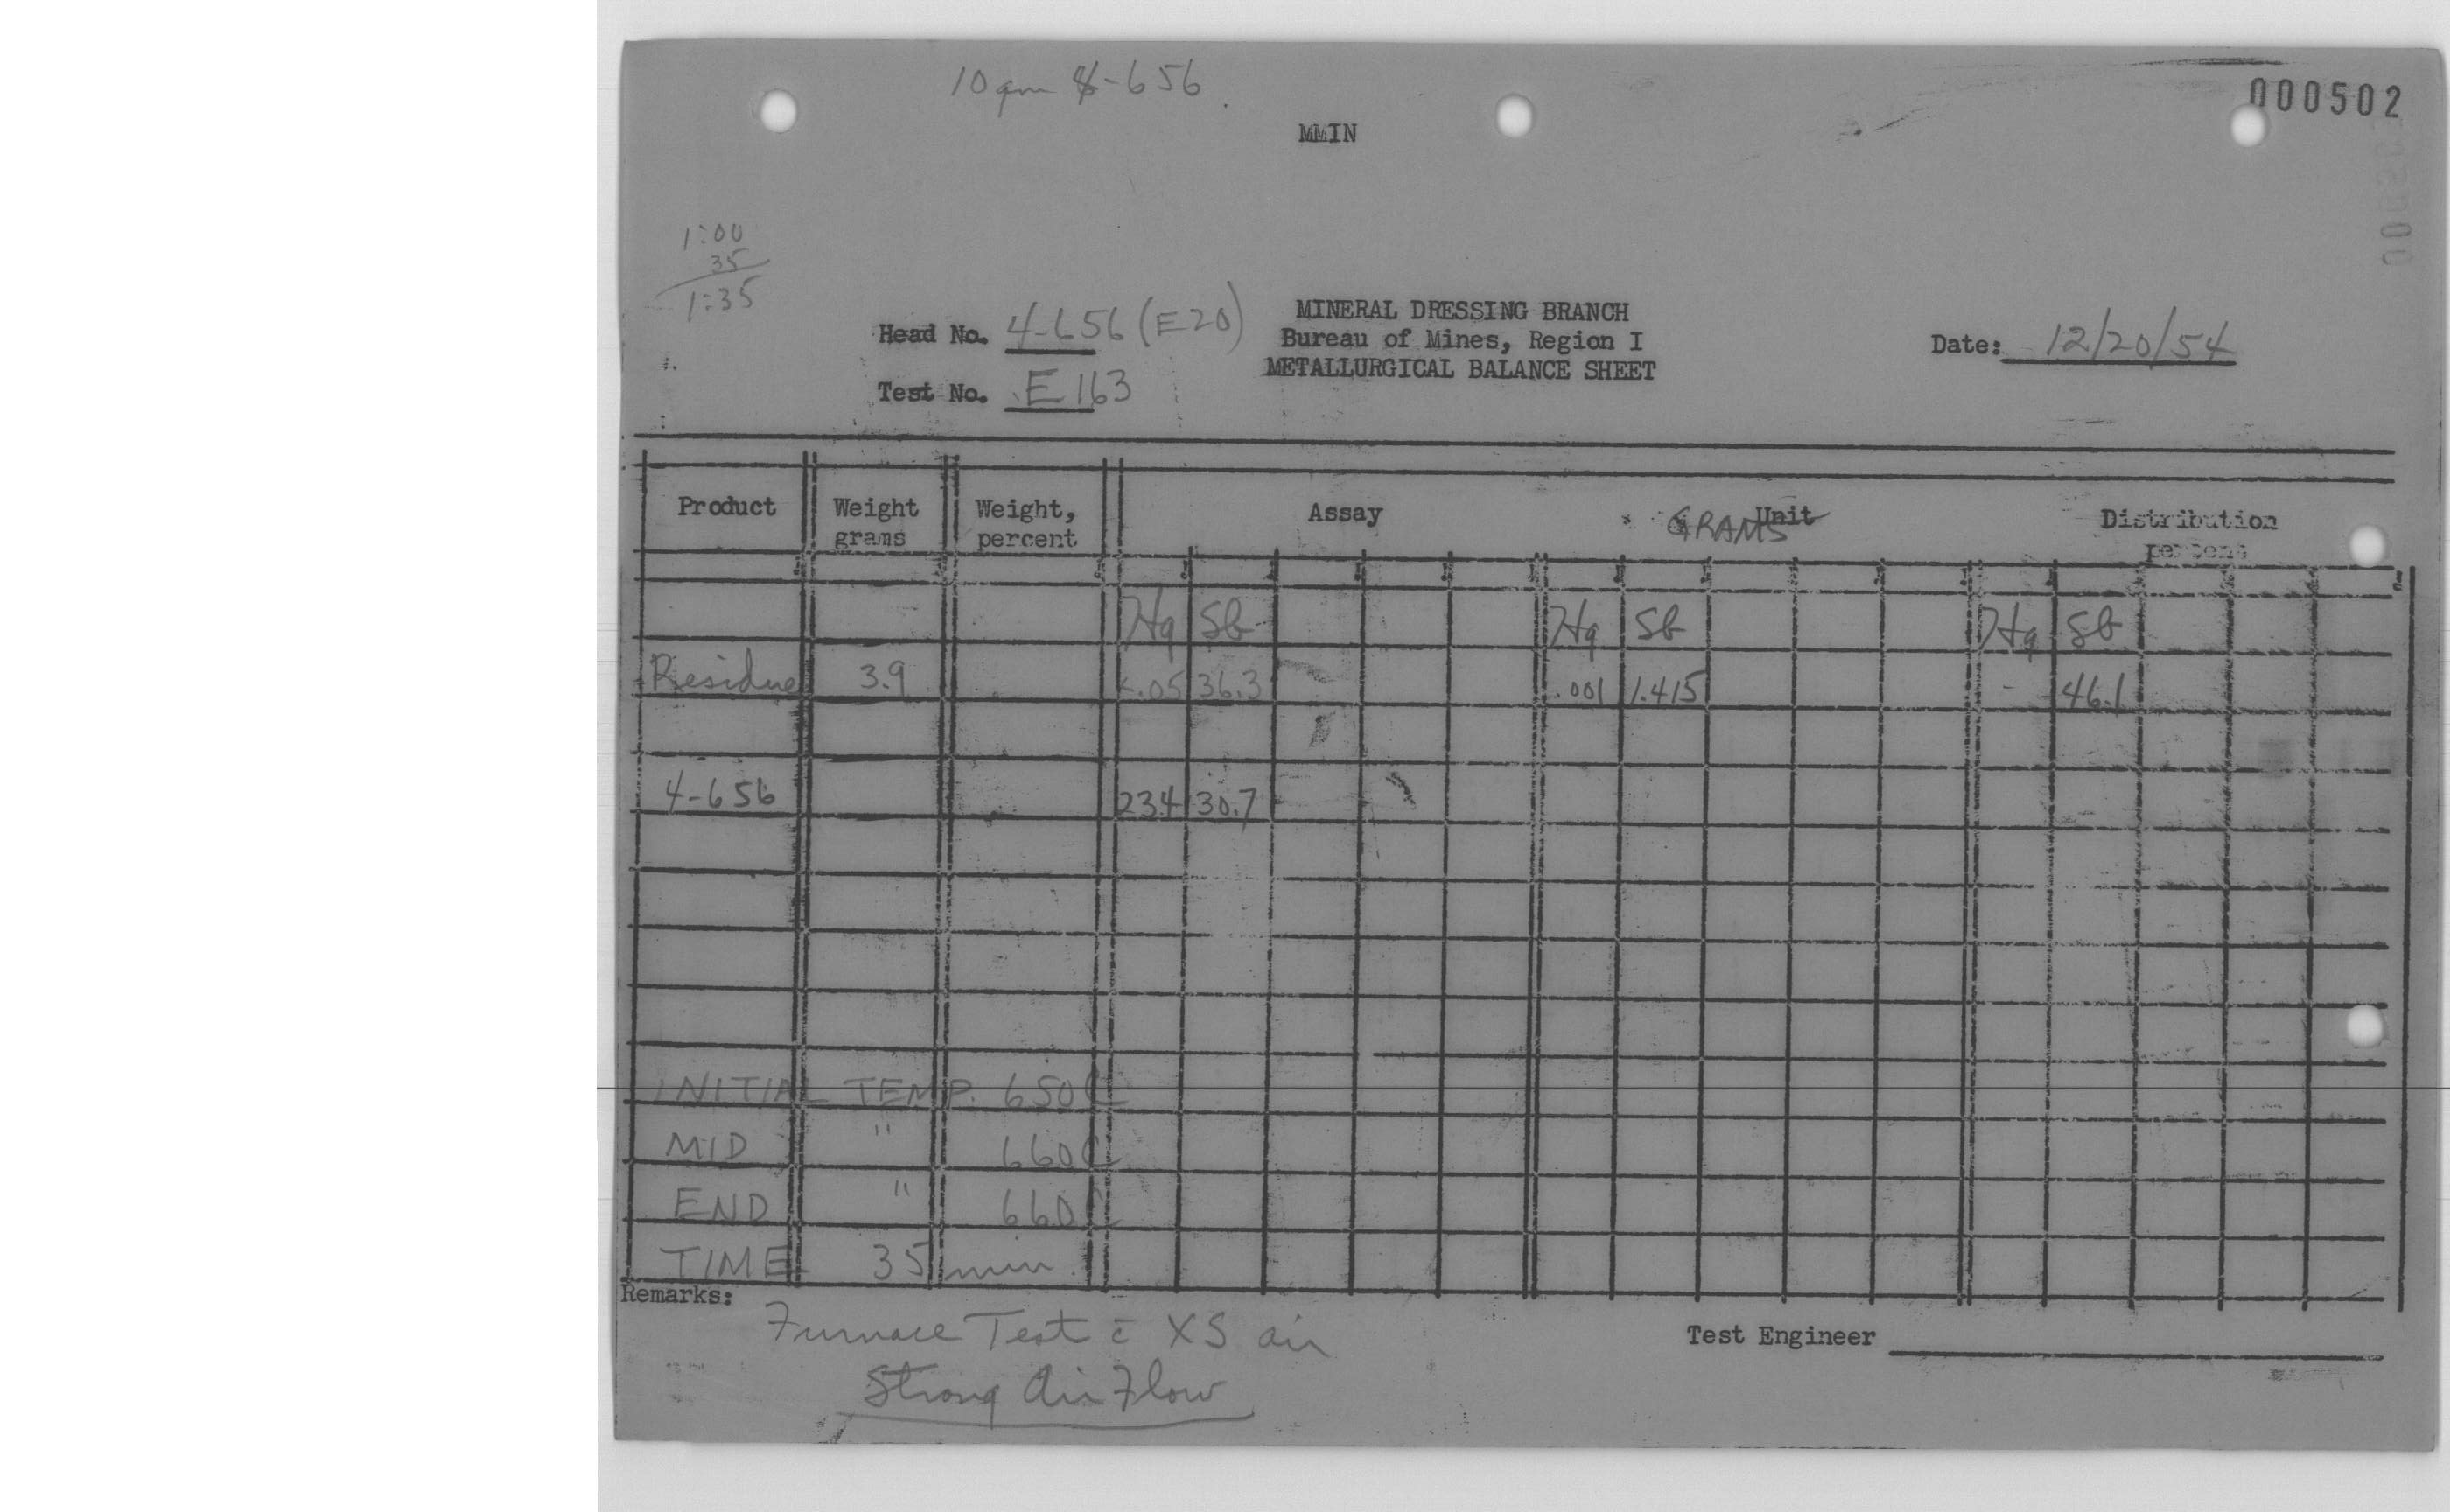 10 gm 4-656
000502
MMIN
1:00
35
1:35
Head No. 4-656 (E20)
Test No. E163
MINERAL DRESSING BRANCH
Bureau of Mines, Region I
METALLURGICAL BALANCE SHEET
Date: 12/20/54
Product Weight grams Weight, percent Assay Unit GRAMS Distribution percent
Hg Sb Hg Sb Hg Sb
Residue 3.9 <.05 36.3 .001 1.415 - 46.1
4-656 23.4 30.7
INITIAL TEMP. 650C
MID " 660C
END " 660C
TIME 35 min
Remarks:
Furnace Test c̄ XS air
Strong Air Flow
Test Engineer